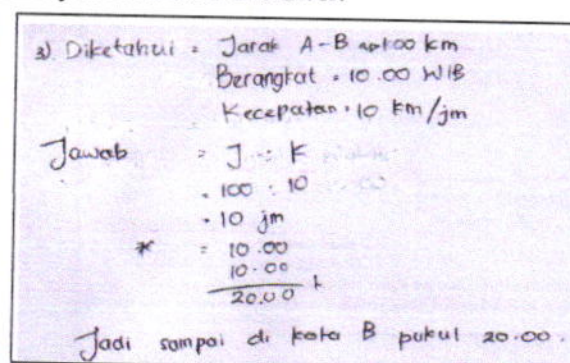 3) Diketahui = Jarak A-B = 100 km
Berangkat = 10.00 WIB
Kecepatan = 10 km/jm
Jawab = J : K
= 100 : 10
= 10 jm
* = 10.00
10.00
20.00 +
Jadi sampai di kota B pukul 20.00.